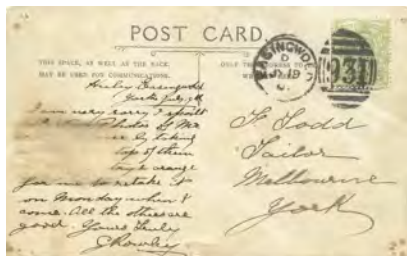 POST CARD.
THIS SPACE, AS WELL AS THE BACK,
MAY BE USED FOR COMMUNICATIONS.
ONLY THE ADDRESS TO
EASINGWOLD
D
JY 19
931
Easingwold
York July
I am very sorry I spoilt
Photos of Mr
by taking
top of them
arrange
for me to retake it
on Monday when I
come. All the others are
good. Yours truly
Rowley
F Todd
Tailor
Melbourne
York